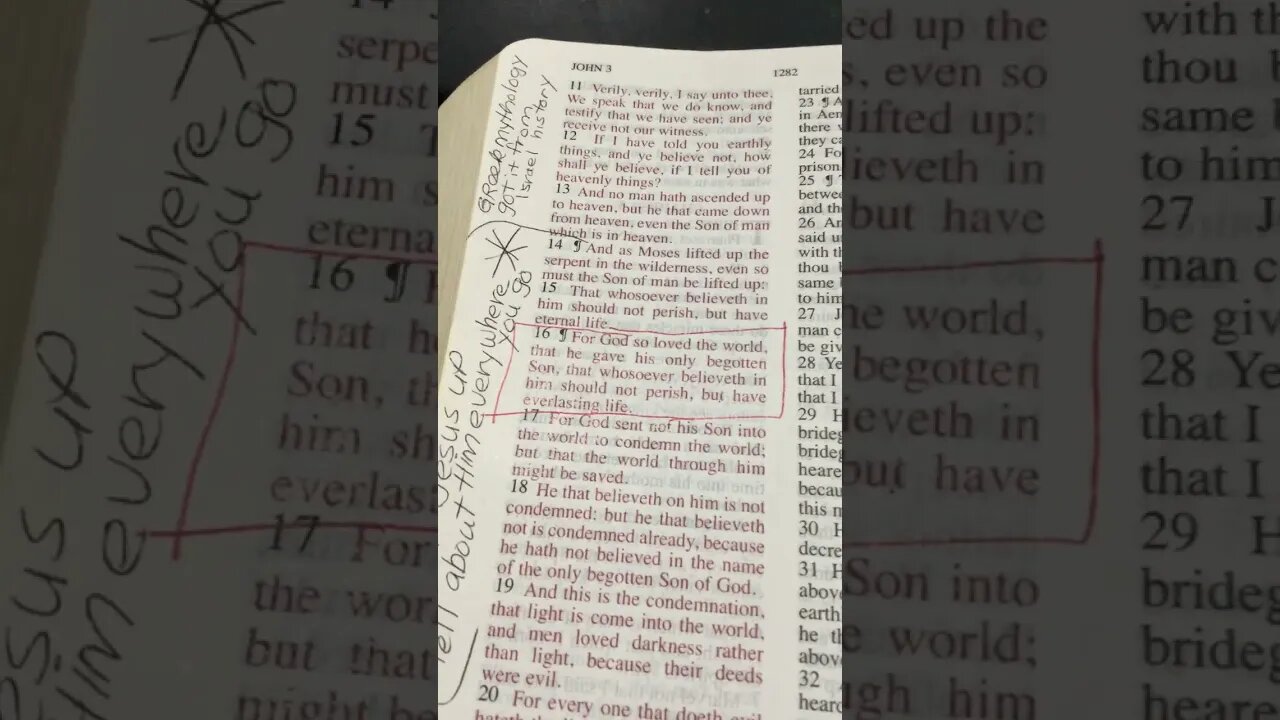 JOHN 3
1282
11 Verily, verily, I say unto thee,
We speak that we do know, and
testify that we have seen; and ye
receive not our witness.
12 If I have told you earthly
things, and ye believe not, how
shall ye believe, if I tell you of
heavenly things?
13 And no man hath ascended up
to heaven, but he that came down
from heaven, even the Son of man
which is in heaven.
14 ¶ And as Moses lifted up the
serpent in the wilderness, even so
must the Son of man be lifted up:
15 That whosoever believeth in
him should not perish, but have
eternal life.
16 ¶ For God so loved the world,
that he gave his only begotten
Son, that whosoever believeth in
him should not perish, but have
everlasting life.
17 For God sent not his Son into
the world to condemn the world;
but that the world through him
might be saved.
18 He that believeth on him is not
condemned: but he that believeth
not is condemned already, because
he hath not believed in the name
of the only begotten Son of God.
19 And this is the condemnation,
that light is come into the world,
and men loved darkness rather
than light, because their deeds
were evil.
20 For every one that doeth evil
tarried
23 ¶ A
in Aen
there
they ca
24 Fo
prison.
25 ¶
betwee
and the
26 An
said u
with th
thou
same
to him
27 J
man c
be giv
28 Ye
that I
that I
29 H
brideg
brideg
heare
becau
this
30 H
decre
31 H
abov
earth
he th
abov
32
heard
Greek mythology
got it from
Israel history
Jesus up
Tell about Him everywhere
you go